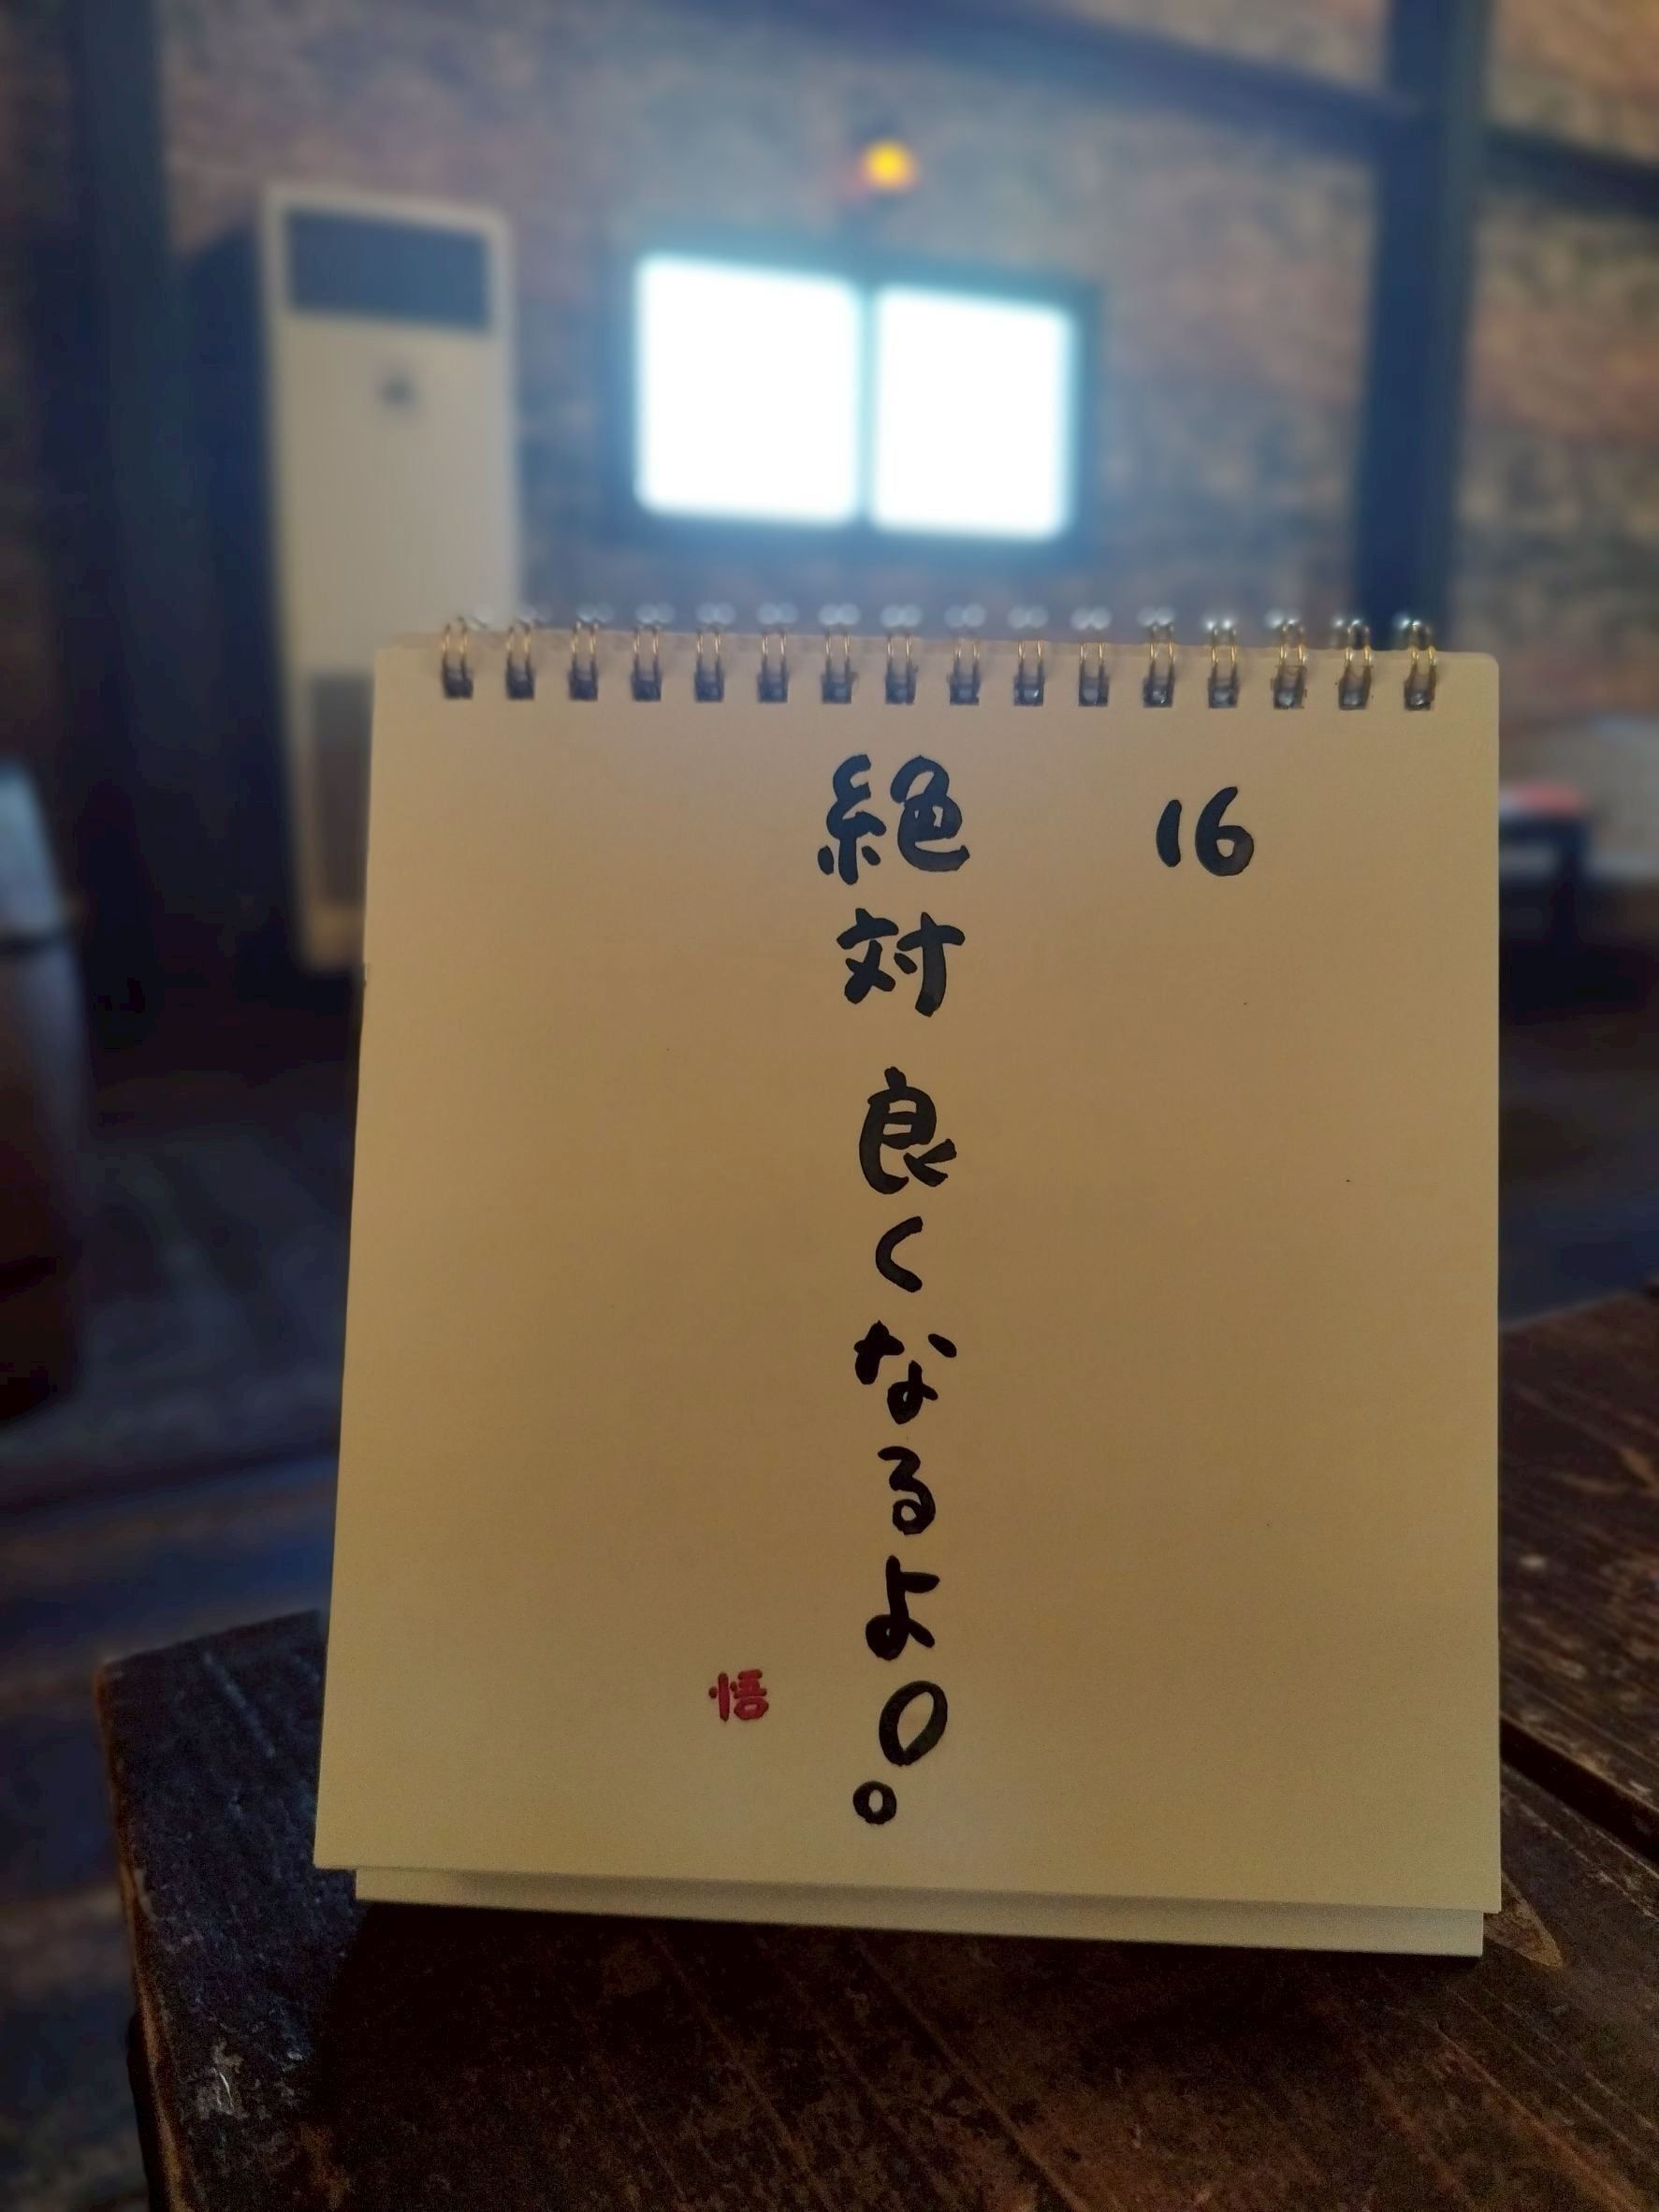 16
絶対良くなるよ〇。
悟